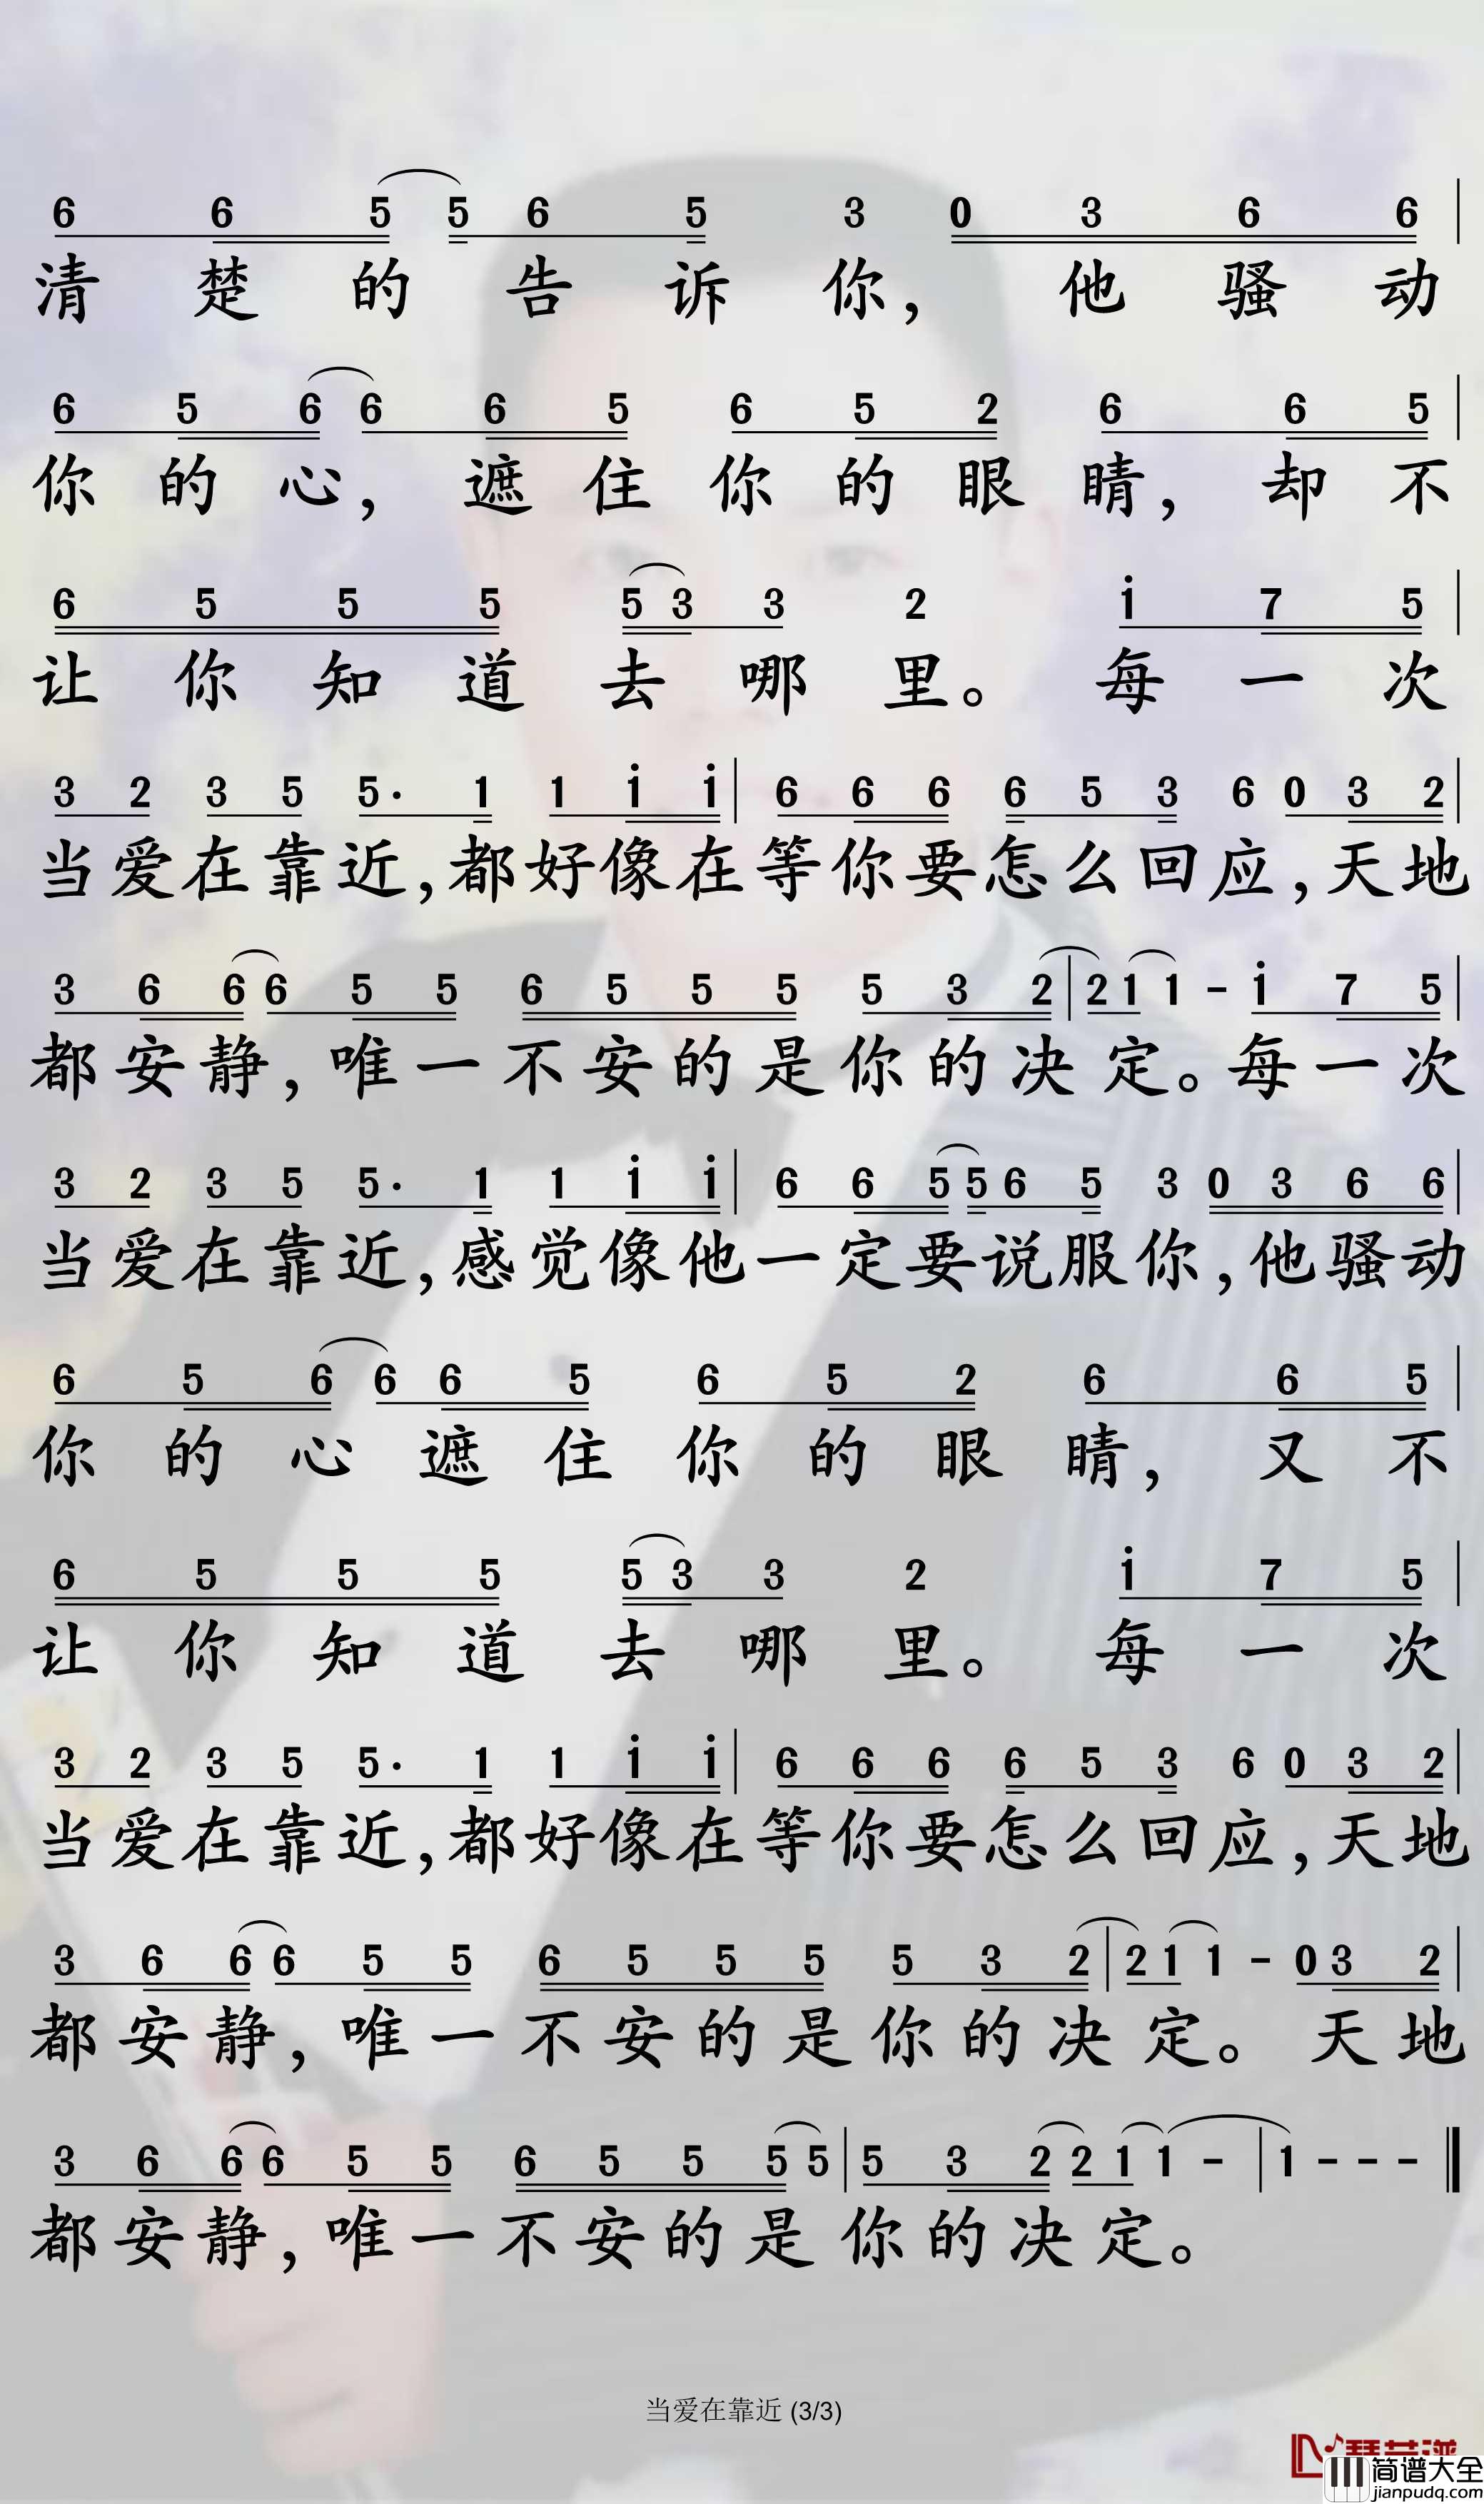 6 6 5 5 6 5 3 0 3 6 6 |
清楚的告诉你，他骚动
6 5 6 6 6 5 6 5 2 6 6 5 |
你的心，遮住你的眼睛，却不
6 5 5 5 5 3 3 2 i 7 5 |
让你知道去哪里。每一次
3 2 3 5 5· 1 1 i i | 6 6 6 6 5 3 6 0 3 2 |
当爱在靠近，都好像在等你要怎么回应，天地
3 6 6 6 5 5 6 5 5 5 5 3 2 | 2 1 1 - i 7 5 |
都安静，唯一不安的是你的决定。每一次
3 2 3 5 5· 1 1 i i | 6 6 5 5 6 5 3 0 3 6 6 |
当爱在靠近，感觉像他一定要说服你，他骚动
6 5 6 6 6 5 6 5 2 6 6 5 |
你的心遮住你的眼睛，又不
6 5 5 5 5 3 3 2 i 7 5 |
让你知道去哪里。每一次
3 2 3 5 5· 1 1 i i | 6 6 6 6 5 3 6 0 3 2 |
当爱在靠近，都好像在等你要怎么回应，天地
3 6 6 6 5 5 6 5 5 5 5 3 2 | 2 1 1 - 0 3 2 |
都安静，唯一不安的是你的决定。天地
3 6 6 6 5 5 6 5 5 5 5 | 5 3 2 2 1 1 - | 1 - - - ‖
都安静，唯一不安的是你的决定。
当爱在靠近 (3/3)
简谱大全
jianpudq.com